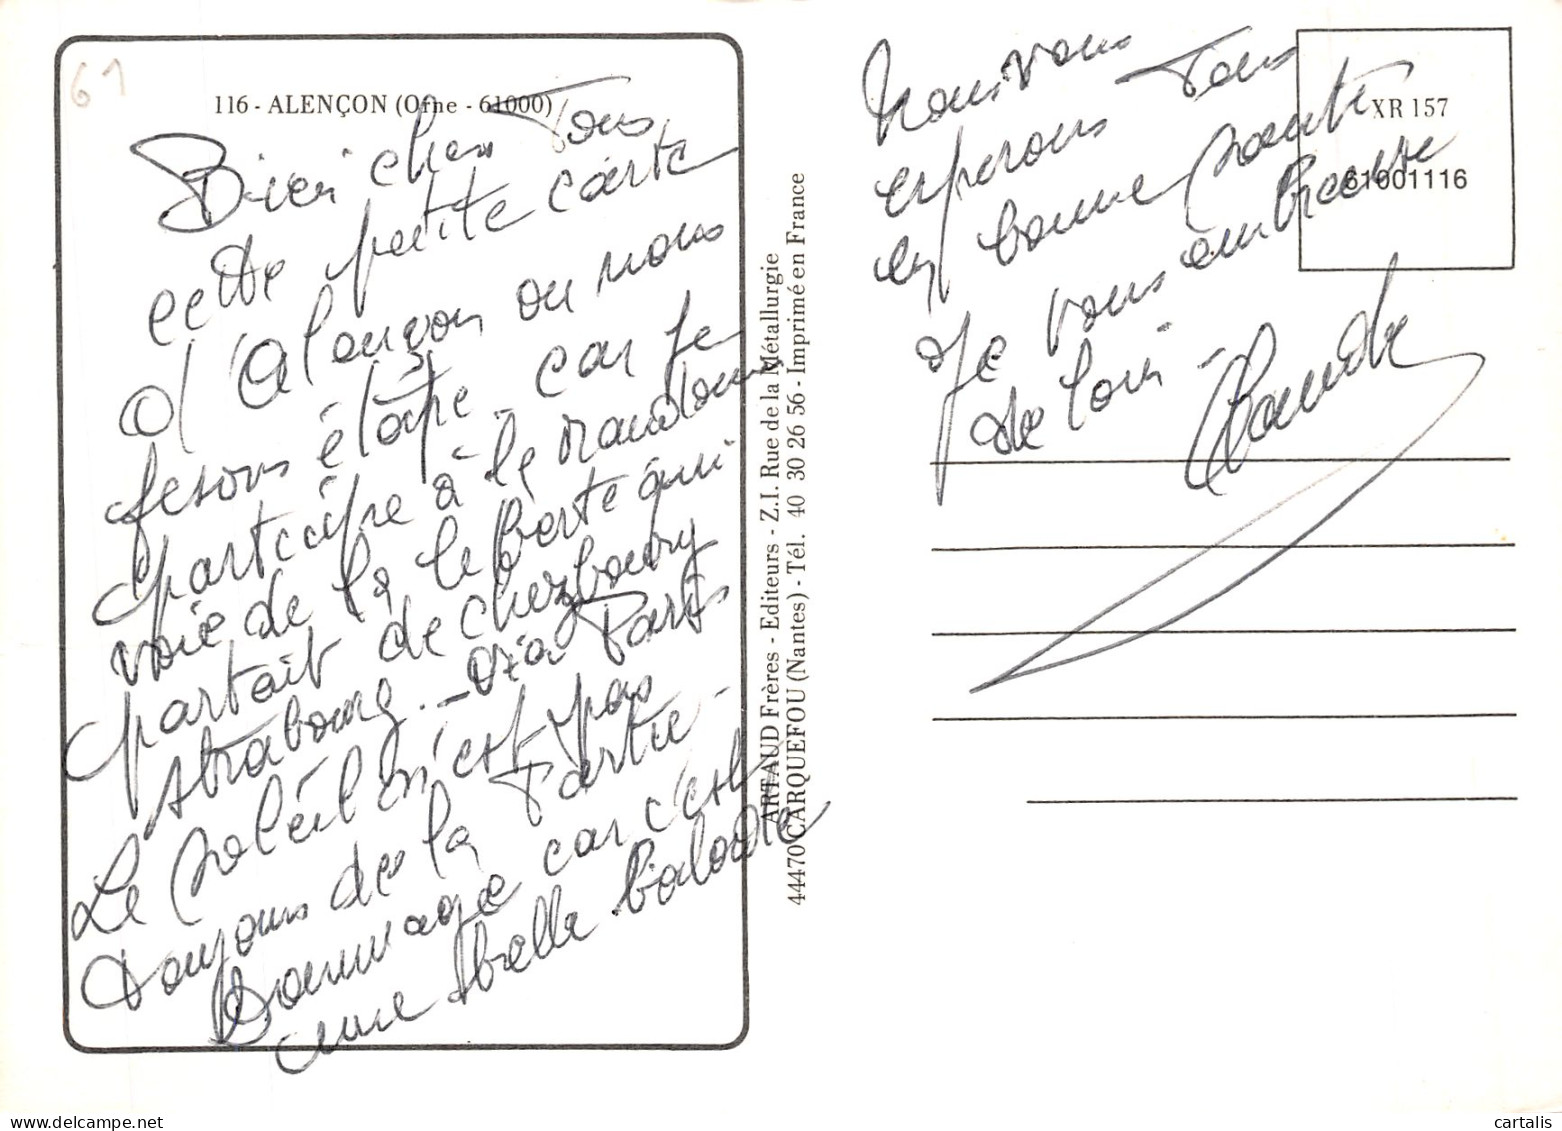 61
116 - ALENÇON (Orne - 61000)
Bien chers Tous
cette petite carte
d'Alençon ou nous
fesons étape. car je
participe à le randonné
voie de la liberté qui
partait de cherbourg
strabourg - via Paris
Le soleil n'est pas
toujours de la Partie -
Dommage car c'est
une belle balade
ARTAUD Frères - Editeurs - Z.I. Rue de la Métallurgie
44470 CARQUEFOU (Nantes) - Tél. 40 30 26 56 - Imprimé en France
XR 157
61001116
Nous vous
esperons Tous
en bonne santé
Je vous embrasse
de loin -
Claude
cartalis